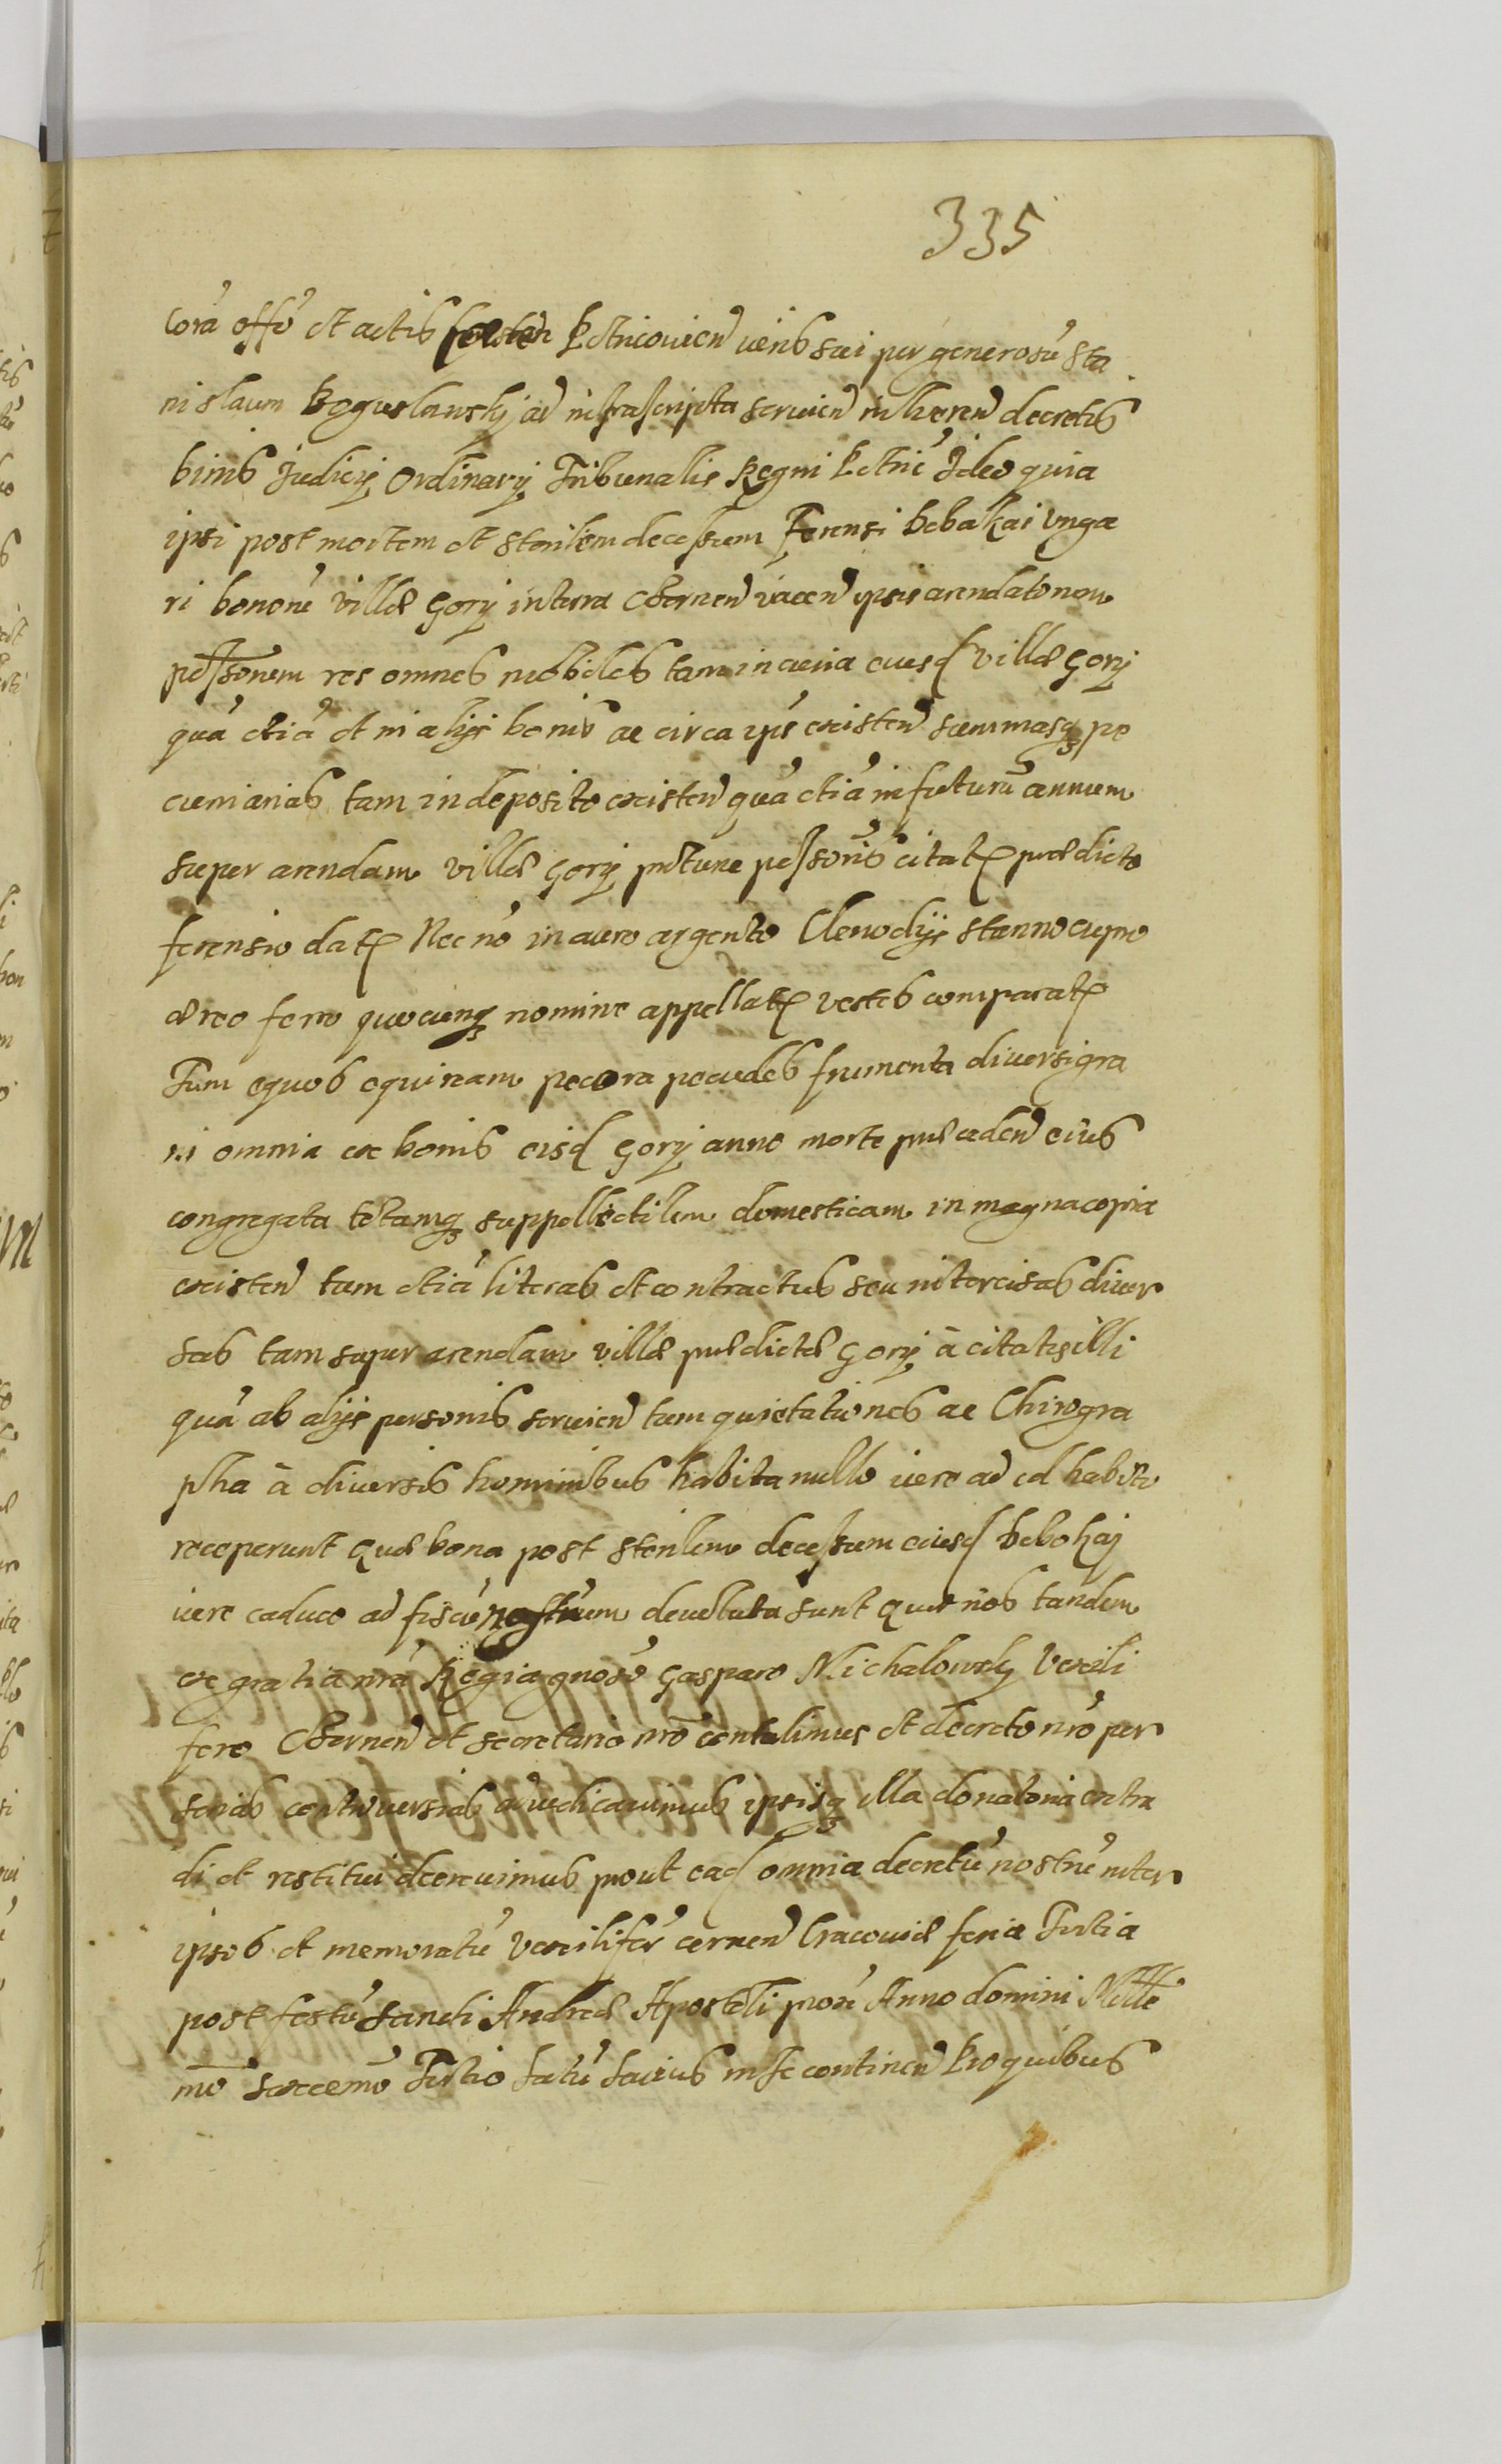 335
corā offō et actis Petricovien venis sui per generosū Sta
nislaum Boguslawskÿ ad infrascripta servien inheren decretis
binis Judicÿ Ordinarÿ Tribunalis Regni Petric Ideo quia
ipsi post mortem et sterilem decessum Ferensi Bebakai Unga
ri bonorū villæ Gorÿ in terra Chernen iacen ipsis arendatonem
possessorem res omnes mobiles tam in curia eiusd villæ Gorÿ
quā etiā et in alÿs bonis ac circa ips existen summasq pe
cuniarias tam in deposito existen quā etiā in futurū annum
super arendam villæ Gorÿ per tunc possessores citat prædicto
ferensio dat Nec nō in auro argento Clenodÿs stanno cupro
æreo ferro quocunq nomine appellat vestes comparat
Tum equos equiream pecora pecudes frumenta diversi gra
ni omnia ex bonis eisd Gorÿ anno morte præceden eius
congregata totamq suppellectilem domesticam in magna copia
existen tum etiā literas et contractus seu intercisas diver
sas tam super arendam villæ prædictæ Gorÿ à citatis illi
quā ab alÿs personis servien tum quietationes ac Chirogra
pha à diversis hominibus habita nullo iure ad id habito
receperunt quæ bona post sterilem decessum eiusd Bebokaj
iure caduco ad fiscū nostrum devoluta sunt quæ nos tandem
ex gratia nrā Regia gnoso Gasparo Michalowskÿ Vexili
fero Chernen et secretario nrō contulimus et decreto nrō per
sonas controversias adiudicavimus ipsiq illa donatoria extra
di et restitui decrevimus prout ead omnia decretū nostrū inter
ipsos et memoratū Vexiliferū cernen Cracoviæ feria Tertia
post festū Sancti Andreæ Apostoli prox Anno domini Mille
mo sexcemo Tertio latū latius in se continen Pro quibus